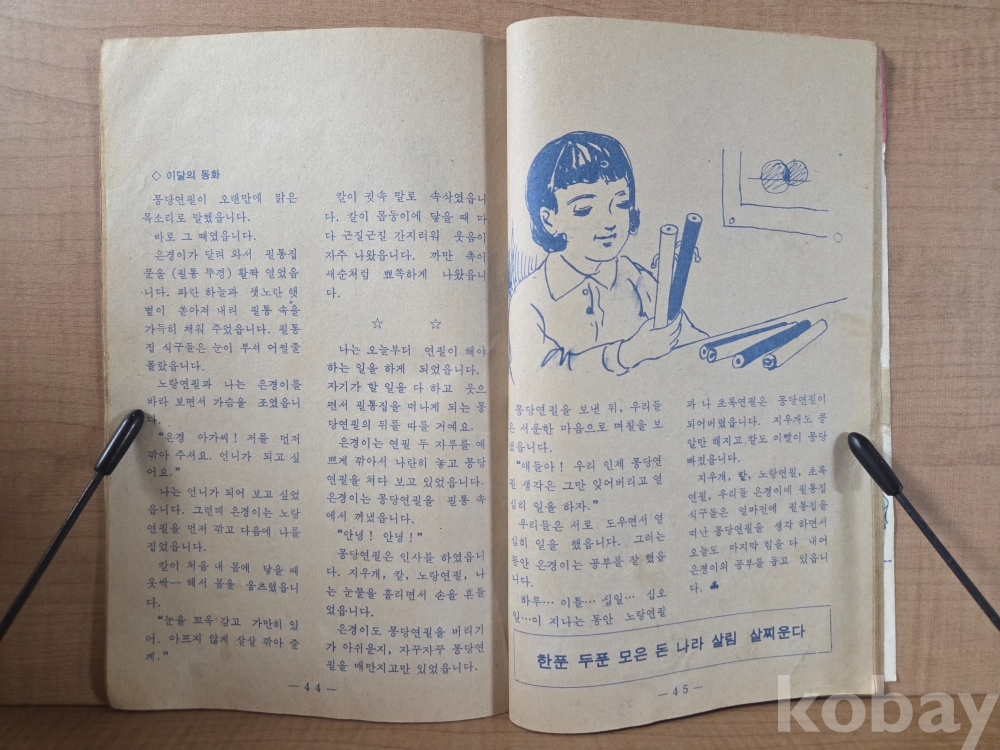 ◇ 이달의 동화
몽당연필이 오랜만에 맑은
목소리로 말했읍니다.
바로 그 때였읍니다.
은경이가 달려 와서 필통집
문을 (필통 뚜껑) 활짝 열었읍
니다. 파란 하늘과 샛노란 햇
볕이 쏟아져 내려 필통 속을
가득히 채워 주었읍니다. 필통
집 식구들은 눈이 부셔 어쩔줄
몰랐읍니다.
노랑연필과 나는 은경이를
바라 보면서 가슴을 조였읍니
다.
"은경 아가씨! 저를 먼저
깎아 주셔요. 언니가 되고 싶
어요."
나는 언니가 되어 보고 싶었
읍니다. 그런데 은경이는 노랑
연필을 먼저 깎고 다음에 나를
집었읍니다.
칼이 처음 내 몸에 닿을 때
웃싹— 해서 몸을 움츠렸읍니
다.
"눈을 꼬옥 감고 가만히 있
어. 아프지 않게 살살 깎아 줄
께."
칼이 귓속 말로 속삭였읍니
다. 칼이 몸둥이에 닿을 때 마
다 근질근질 간지러워 웃음이
자주 나왔읍니다. 까만 촉이
새순처럼 뾰쪽하게 나왔읍니
다.
☆ ☆
나는 오늘부터 연필이 해야
하는 일을 하게 되었읍니다.
자기가 할 일을 다 하고 웃으
면서 필통집을 떠나게 되는 몽
당연필의 뒤를 따를 거예요.
은경이는 연필 두 자루를 예
쁘게 깎아서 나란히 놓고 몽당
연필을 쳐다 보고 있었읍니다.
은경이는 몽당연필을 필통 속
에서 꺼냈읍니다.
"안녕! 안녕!"
몽당연필은 인사를 하였읍니
다. 지우개, 칼, 노랑연필, 나
는 눈물을 흘리면서 손을 흔들
었읍니다.
은경이도 몽당연필을 버리기
가 아쉬운지, 자꾸자꾸 몽당연
필을 매만지고만 있었읍니다.
—44—
몽당연필을 보낸 뒤, 우리들
은 서운한 마음으로 며칠을 보
냈읍니다.
"얘들아! 우리 인제 몽당연
필 생각은 그만 잊어버리고 열
심히 일을 하자."
우리들은 서로 도우면서 열
심히 일을 했읍니다. 그러는
동안 은경이는 공부를 잘 했읍
니다.
하루… 이틀… 십일… 십오
일…이 지나는 동안 노랑연필
과 나 초록연필은 몽당연필이
되어버렸읍니다. 지우개도 콩
알만 해지고 칼도 이빨이 몽당
빠졌읍니다.
지우개, 칼, 노랑연필, 초록
연필, 우리들 은경이네 필통집
식구들은 얼마전에 필통집을
떠난 몽당연필을 생각 하면서
오늘도 마지막 힘을 다 내어
은경이의 공부를 돕고 있읍니
다. ♣
한푼 두푼 모은 돈 나라 살림 살찌운다
—45—
kobay